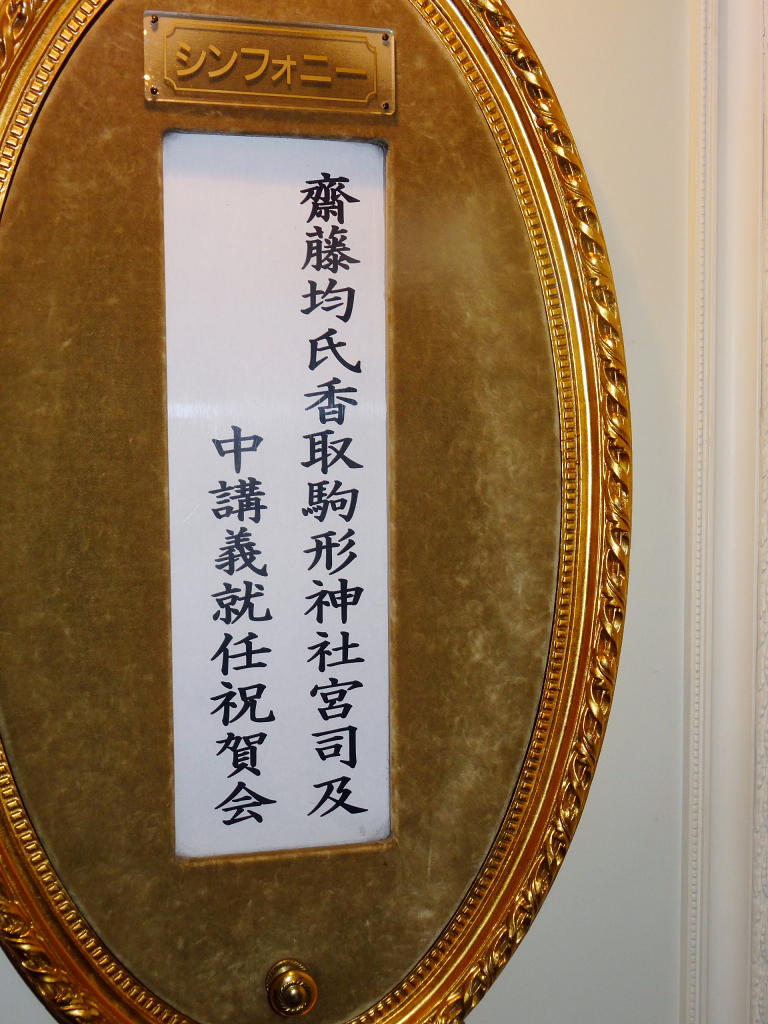 シンフォニー
齋藤均氏香取駒形神社宮司及
中講義就任祝賀会